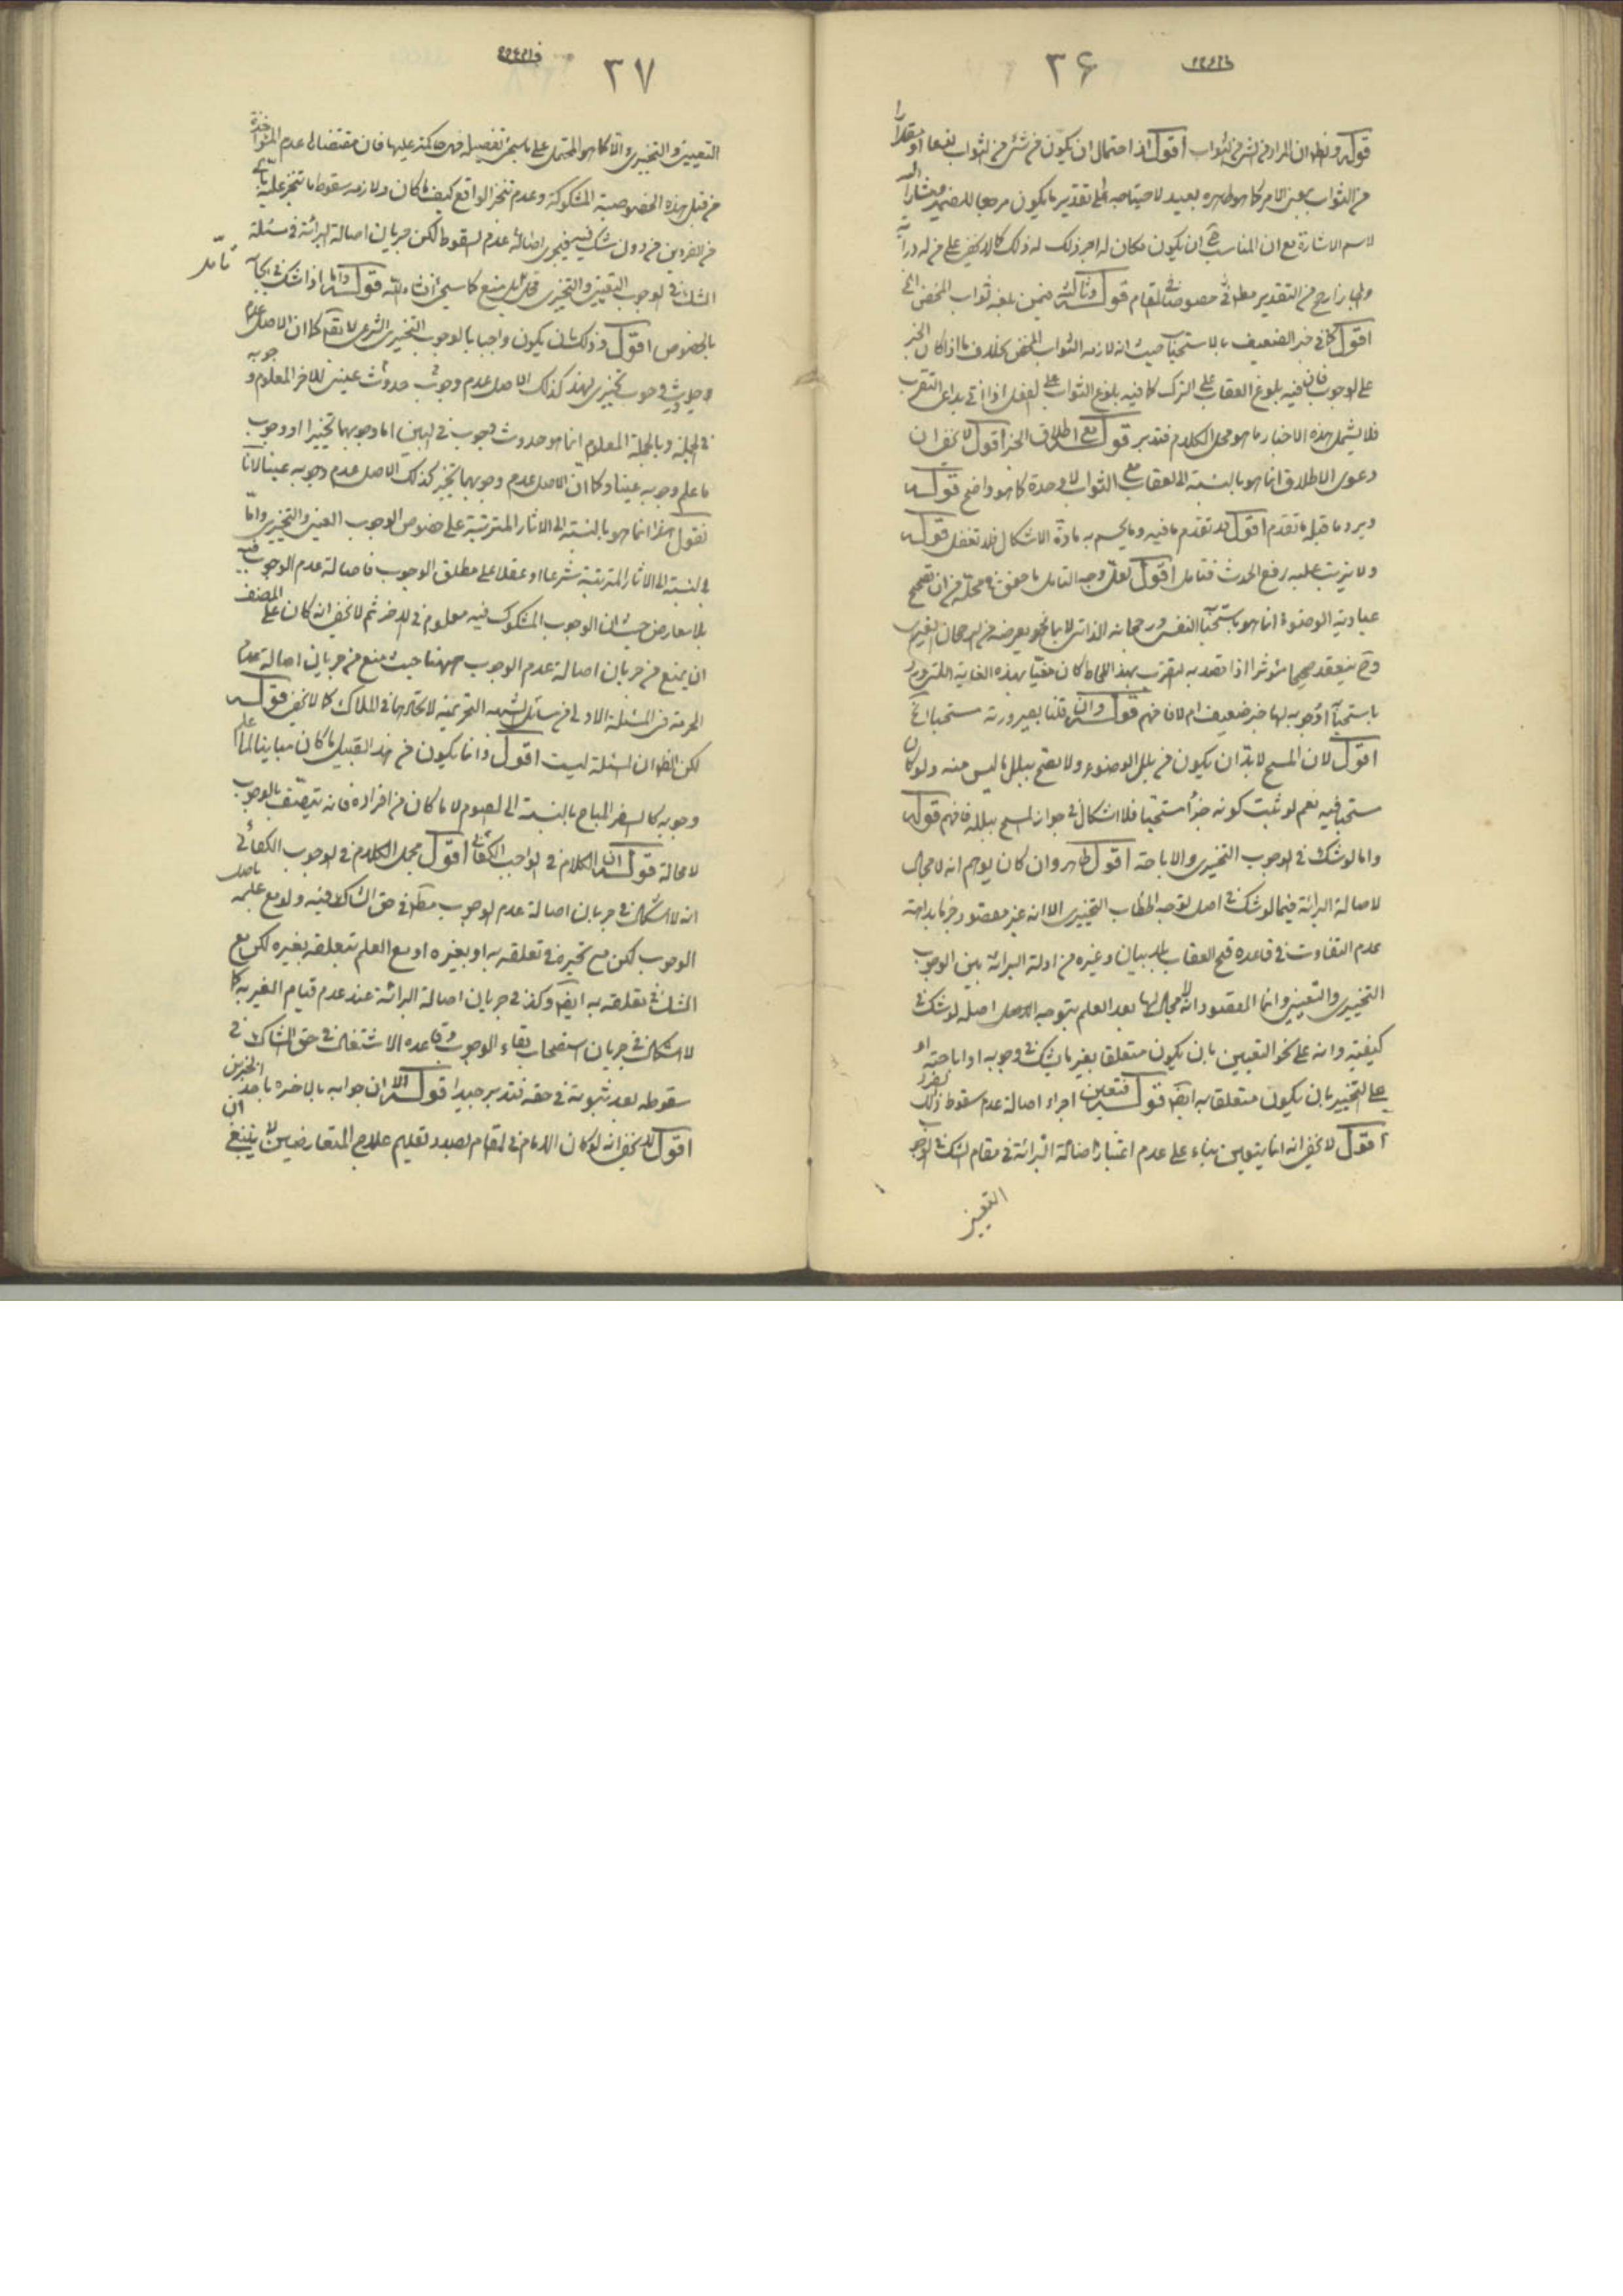 ٣۶
قوله والظاهر ان المراد من شئ من الثواب اقول اذ احتمال ان يكون من شئ من الثواب نفيا او مقدارا
من الثواب بمعنى الامر كما هو ظاهره بعيد لاحتياجه الى تقدير ما يكون مرجعا للضمير ومشارا اليه
لاسم الاشارة مع ان المناسب ح ان يكون مكان له اجر ذلك له ذلك كما لا يخفى على من له دراية
اقول كما فى خبر الضعيف بالاستحباب حيث انه لازمه الثواب المحض بخلاف ما اذا كان الخبر
على الوجوب فان فيه بلوغ العقاب على الترك كما فيه بلوغ الثواب على الفعل اذا اتى بداعى التقرب
فلا يشمل هذه الاخبار ما هو محل الكلام فتدبر قوله مع اطلاق الخبر اقول لا يخفى ان
دعوى الاطلاق انما هو بالنسبة الى العقاب مع الثواب لا وحدة كما هو واضح قوله
ويرد ما قبله ما تقدم اقول قد تقدم ما فيه وما يحسم به مادة الاشكال فلا تغفل قوله
ولا يترتب عليه رفع الحدث فتامل اقول لعل وجه التامل ما حقق فى محله من ان تصحيح
عبادية الوضوء انما هو باستحبابه النفسى ورجحانه الذاتى لا بما هو يعرضه من الرجحان الغيرى
وح ينعقد صحيحا مؤثرا اذا قصد به التقرب بهذا اللحاظ كان مغيّا بهذه الغاية التى ورد
باستحبابه او وجوبه لها خبر ضعيف ام لا فافهم قوله وان قلنا بصيرورته مستحبا الخ
اقول لان المسح لا بد ان يكون من بلل الوضوء ولا يصح ببلل ما ليس منه ولو كان
مستحبا فيه نعم لو ثبت كونه جزأ مستحبا فلا اشكال فى جواز المسح ببلله فافهم قوله
واما لو شك فى الوجوب التخييرى والاباحة اقول ظاهره وان كان يوهم انه لا مجال
لاصالة البرائة فيما لو شك فى اصل توجه الخطاب التخييرى الا انه غير مقصود جزما بداهة
عدم التفاوت فى قاعدة قبح العقاب بلا بيان وغيره من ادلة البرائة بين الوجوب
التخييرى والتعيينى وانما المقصود انه لا مجال لها بعد العلم بتوجه الاصل اصله لو شك فى
كيفيته وانه على نحو التعيين بان يكون متعلقا بغير ما يشك فى وجوبه او اباحته او
على التخيير بان يكون متعلقا به ايضا قوله فتعين اجراء اصالة عدم سقوط ذلك الفرد
اقول لا يخفى انه انما يتعين بناء على عدم اعتبار اصالة البرائة فى مقام الشك فى الوجوب
٣٧
التعيينى والتخييرى والا كما هو المحتمل على ما سيجئ تفصيله فهى حاكمة عليها فان مقتضاها عدم المؤاخذة
من قبل هذه الخصوصية المشكوكة وعدم تنجز الواقع كيف ما كان ولازمه سقوط ما تنجز عليه
من الفردين من دون شك فيه فيجرى اصالة عدم السقوط لكن جريان اصالة البرائة فى مسئلة
الشك فى الوجوب التعيينى والتخييرى قابل للمنع كما سيجئ انشاء الله قوله واما اذا شك فى ايجابه
تامل
بالخصوص اقول وذلك بان يكون واجبا بالوجوب التخييرى الشرعى لا يقال كما ان الاصل عدم
فى الجملة وبالجملة المعلوم انما هو حدوث وجوب فى البين اما وجوبهما تخييرا او وجوب
ما علم وجوبه عينا وكما ان الاصل عدم وجوبهما تخييرا كذلك الاصل عدم وجوبه عينا لانا
نقول هذا انما هو بالنسبة الى الاثار المترتبة على خصوص الوجوب العينى والتخييرى واما
بالنسبة الى الاثار المترتبة شرعا او عقلا على مطلق الوجوب فاصالة عدم الوجوب فيه
بلا معارض حيث ان الوجوب المشكوك فيه معلوم فى الاخر ثم لا يخفى انه كان على المصنف
ان يمنع من جريان اصالة عدم الوجوب ههنا حيث منع من جريان اصالة عدم
الحرمة فى المسئلة الاولى من مسائل الشبهة التحريمية لاتحادهما فى الملاك كما لا يخفى قوله
لكن الظاهر ان المسئلة ليست اقول وانما يكون من هذا القبيل ما كان مباينا لما علم
وجوبه كالسفر المباح بالنسبة الى الصوم لا ما كان من افراده فانه يتصف بالوجوب
لا محالة قوله ان الكلام فى الواجب الكفائى اقول مجمل الكلام فى الوجوب الكفائى
انه لا اشكال فى جريان اصالة عدم الوجوب مطلقا فى حق الشاك فيه ولو مع علمه باصل
الوجوب لكن مع تحيره فى تعلقه به او بغيره او مع العلم بتعلقه بغيره لكن مع
الشك فى تعلقه به ايضا وكذا فى جريان اصالة البرائة عند عدم قيام الغير به كما
لا اشكال فى جريان استصحاب بقاء الوجوب وقاعدة الاشتغال فى حق الشاك فى
سقوطه بعد ثبوته فى حقه فتدبر جيدا قوله الا ان جوابه بالاخره باحد الخبرين
اقول لا يخفى انه لو كان الامام فى المقام بصدد تعليم علاج المتعارضين لا ينبغى ان